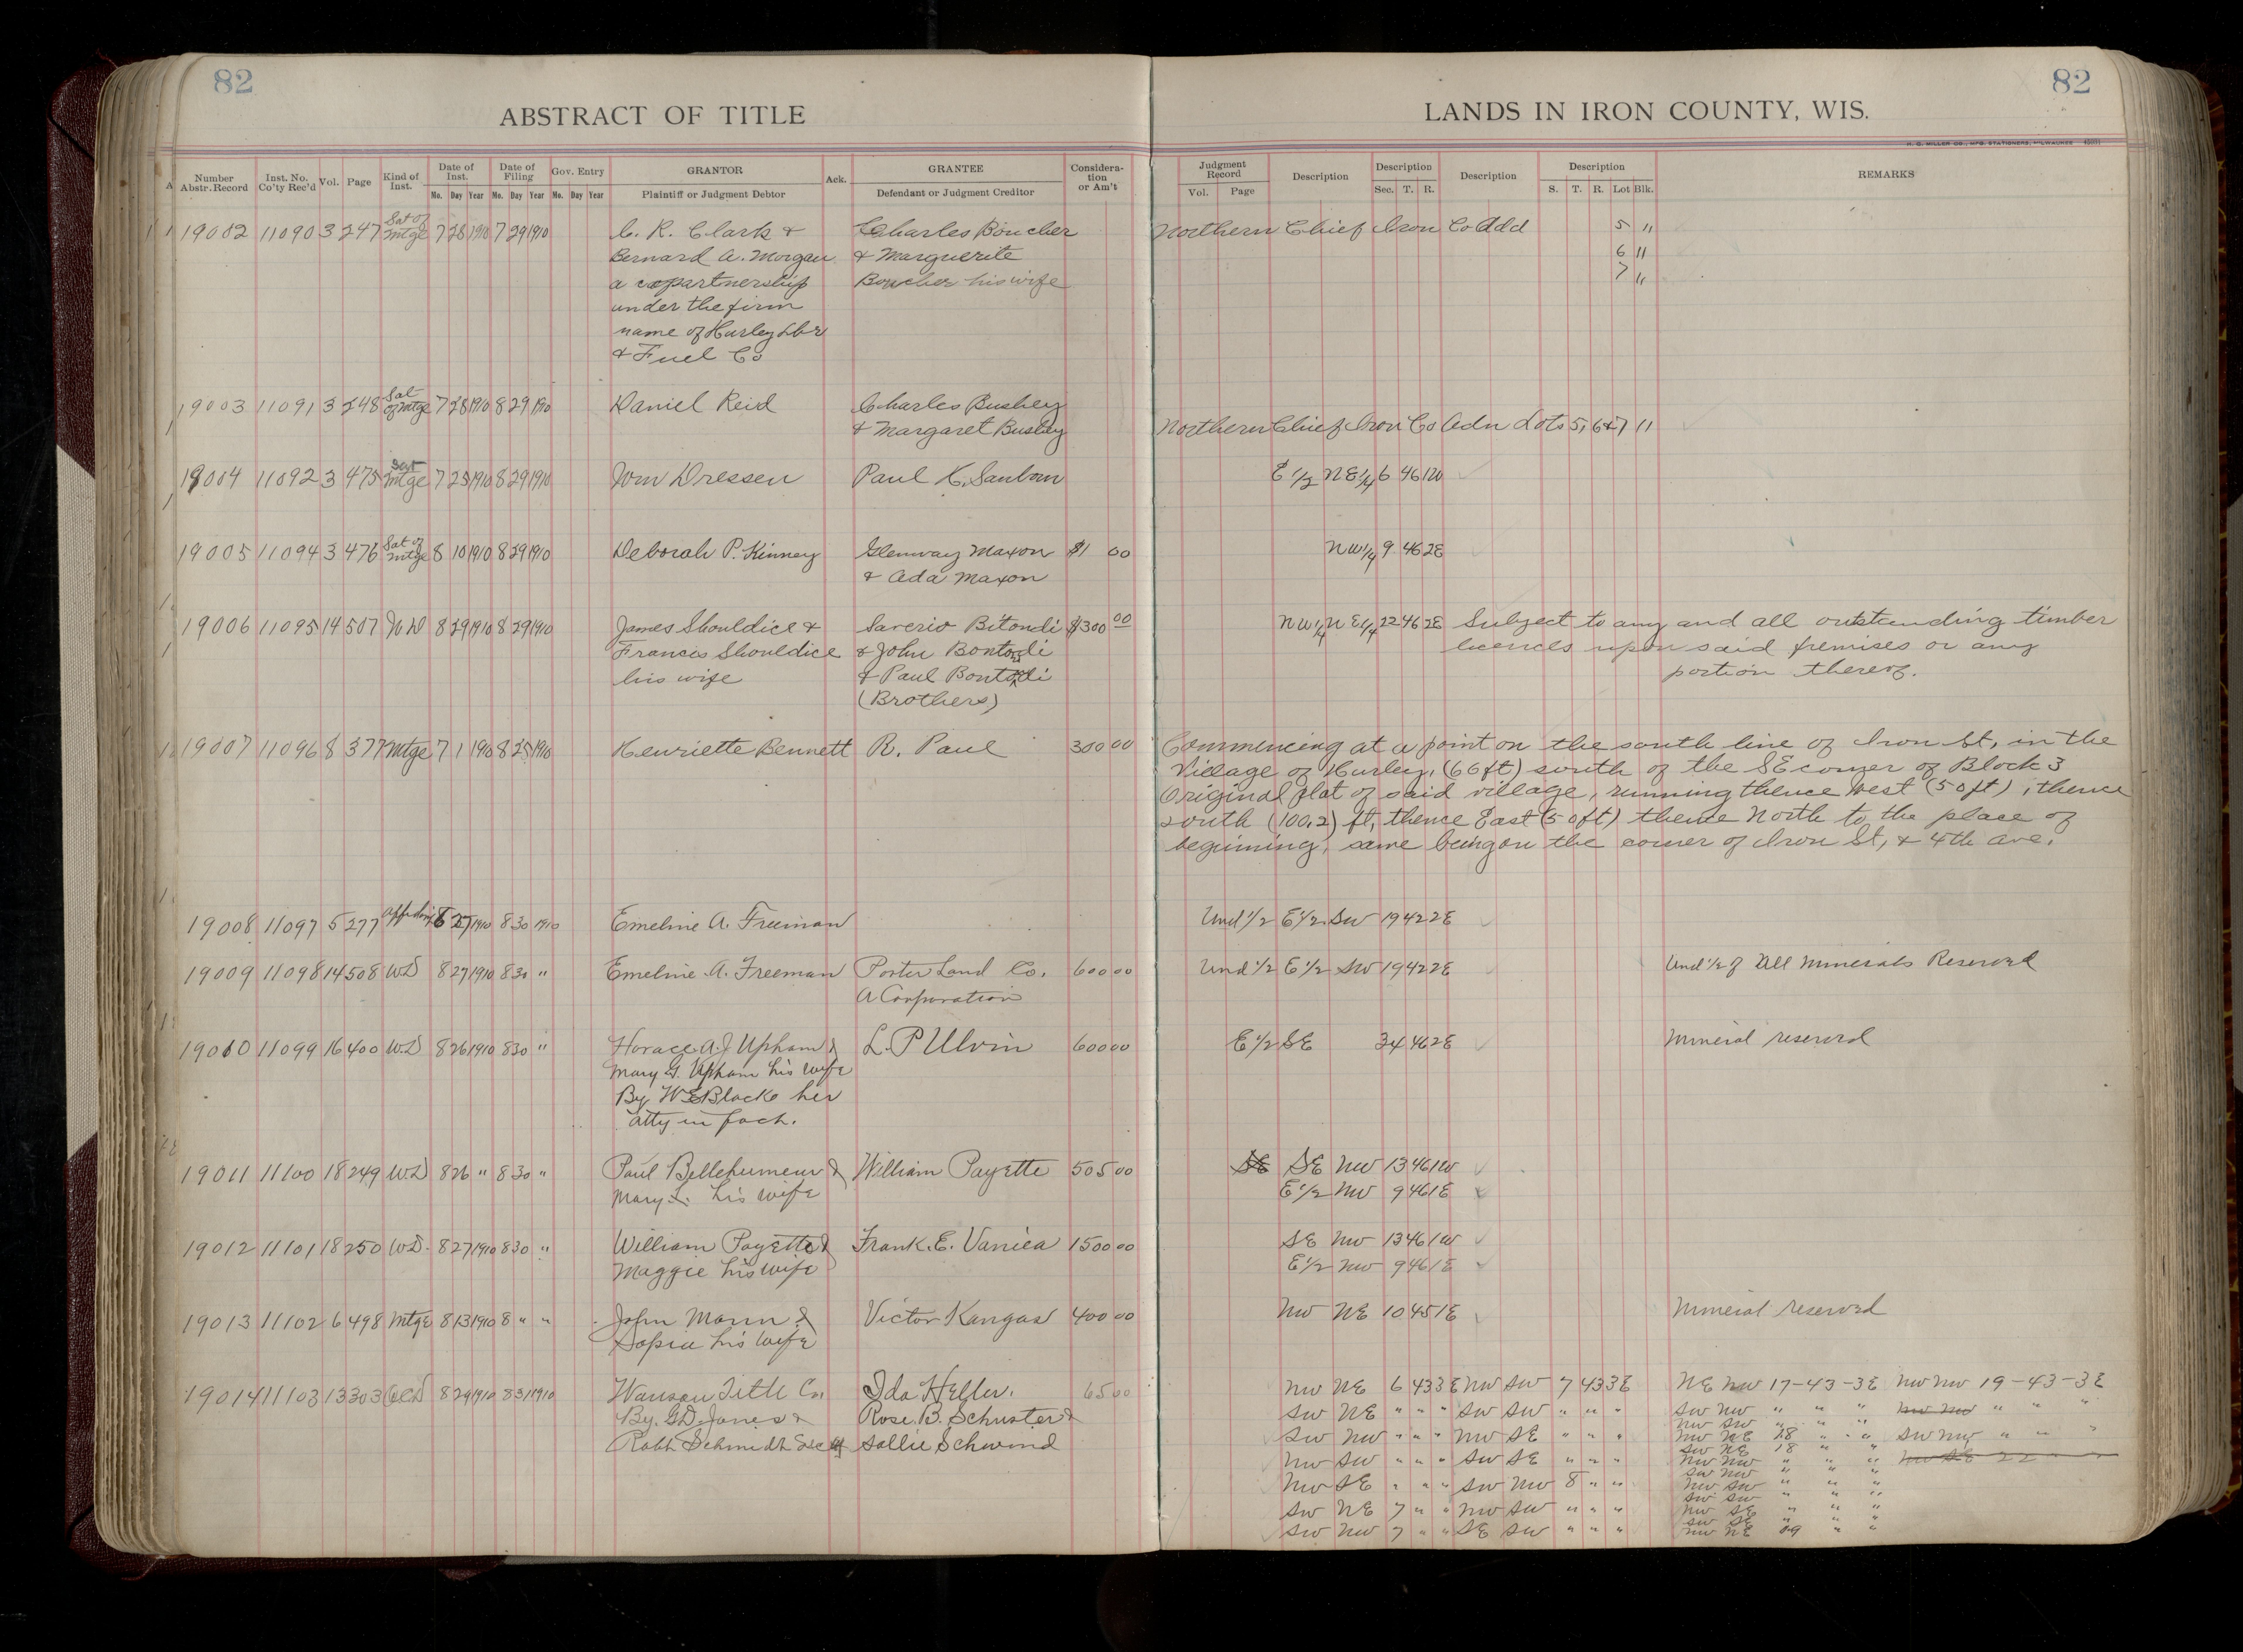 82
82
ABSTRACT OF TITLE
LANDS IN IRON COUNTY, WIS.
H. C. MILLER CO., MFG. STATIONERS, MILWAUKEE
Number Abstr. Record Inst. No. Co'ty Rec'd Vol. Page Kind of Inst. Date of Inst. Mo. Day Year Date of Filing Mo. Day Year Gov. Entry Mo. Day Year GRANTOR Plaintiff or Judgment Debtor Ack. GRANTEE Defendant or Judgment Creditor Consideration or Am't
Judgment Record Vol. Page Description Description Sec. T. R. Description Description S. T. R. Lot Blk. REMARKS
19002 11090 3 247 Sat of Mtge 7 28 1910 7 29 1910 C. R. Clark & Charles Boucher Northern Chief Iron Co Add 5 11
Bernard A. Morgan & Marguerite 6 11
a copartnership Boucher his wife 7 11
under the firm
name of Hurley Lbr
& Fuel Co
19003 11091 3 248 Sat of Mtge 7 28 1910 8 29 1910 Daniel Reid Charles Bushey
& Margaret Bushey Northern Chief Iron Co Adn Lots 5, 6 & 7 11
19004 11092 3 475 Sat Mtge 7 25 1910 8 29 1910 Dressen Paul E 1/2 NE 1/4 6 46 1W
19005 11094 3 476 Sat of Mtge 8 10 1910 8 29 1910 Deborah P. Kinney Glenway Maxon $1 00 NW 1/4 9 46 2E
& Ada Maxon
19006 11095 14 507 WD 8 29 1910 8 29 1910 James Shouldice & Saverio Bitondi $300 00 NW 1/4 NE 1/4 22 46 2E Subject to any and all outstanding timber
Francis Shouldice & John licences upon said premises or any
his wife & Paul portion thereof.
(Brothers)
19007 11096 8 377 Mtge 7 1 1910 8 25 1910 Henriette Bennett R. Paul 300 00 Commencing at a point on the south line of Iron St, in the
Village of Hurley, (66 ft) south of the SE corner of Block 3
Original plat of said village, running thence West (50 ft), thence
south (100.2) ft, thence East (50 ft) thence North to the place of
beginning, same being on the corner of Iron St, & 4th Ave.
19008 11097 5 277 Affidavit 27 1910 8 30 1910 Emeline A. Freeman Und 1/2 E 1/2 SW 19 42 2E
19009 11098 14 508 WD 8 27 1910 8 30 " Emeline A. Freeman Porter Land Co. 600 00 Und 1/2 E 1/2 SW 19 42 2E Und 1/2 of All Minerals Reserved
A Corporation
19010 11099 16 400 W.D 8 26 1910 8 30 " Horace A. J Upham & L. P Ulvin 600 00 E 1/2 SE 34 46 2E Mineral reserved
Mary G. Upham his wife
By W E Black her
atty in fach.
19011 11100 18 249 W.D 8 26 " 8 30 " Paul Bellehumeur & William Payette 505 00 SE SE NW 13 46 1W
Mary L. his wife E 1/2 NW 9 46 1E
19012 11101 18 250 W.D. 8 27 1910 8 30 " William Payette & Frank. E. Vanica 1500 00 SE NW 13 46 1W
Maggie his wife E 1/2 NW 9 46 1E
19013 11102 6 498 Mtge 8 13 1910 8 " " John Mann & Victor Kangas 400 00 NW NE 10 45 1E Mineral reserved
Sopia his wife
19014 11103 13 303 8 29 1910 8 31 1910 Wausau Title Co. Ida Heller. 65 00 NW NE 6 43 3E NW SW 7 43 3E NE NW 17-43-3E NW NW 19-43-3E
By. G.D. Jones & Rose. B. Schuster & SW NE " " " SW SW " " " SW NW " " " NW NW " " "
Robt Schmidt Secy Sallie Schwind SW NW " " " NW SE " " " NW SW " " "
NW SW " " " SW SE " " " NW NE 18 " " SW NW " " "
NW SE " " " SW NW 8 " " SW NE 18 " " NW SE 22 " "
SW NE 7 " " NW SW " " " NW NW " " "
SW NW 7 " " SE SW " " " SW NW " " "
NW SW " " "
SW SW " " "
NW SE " " "
SW SE " " "
NW NE 19 " "